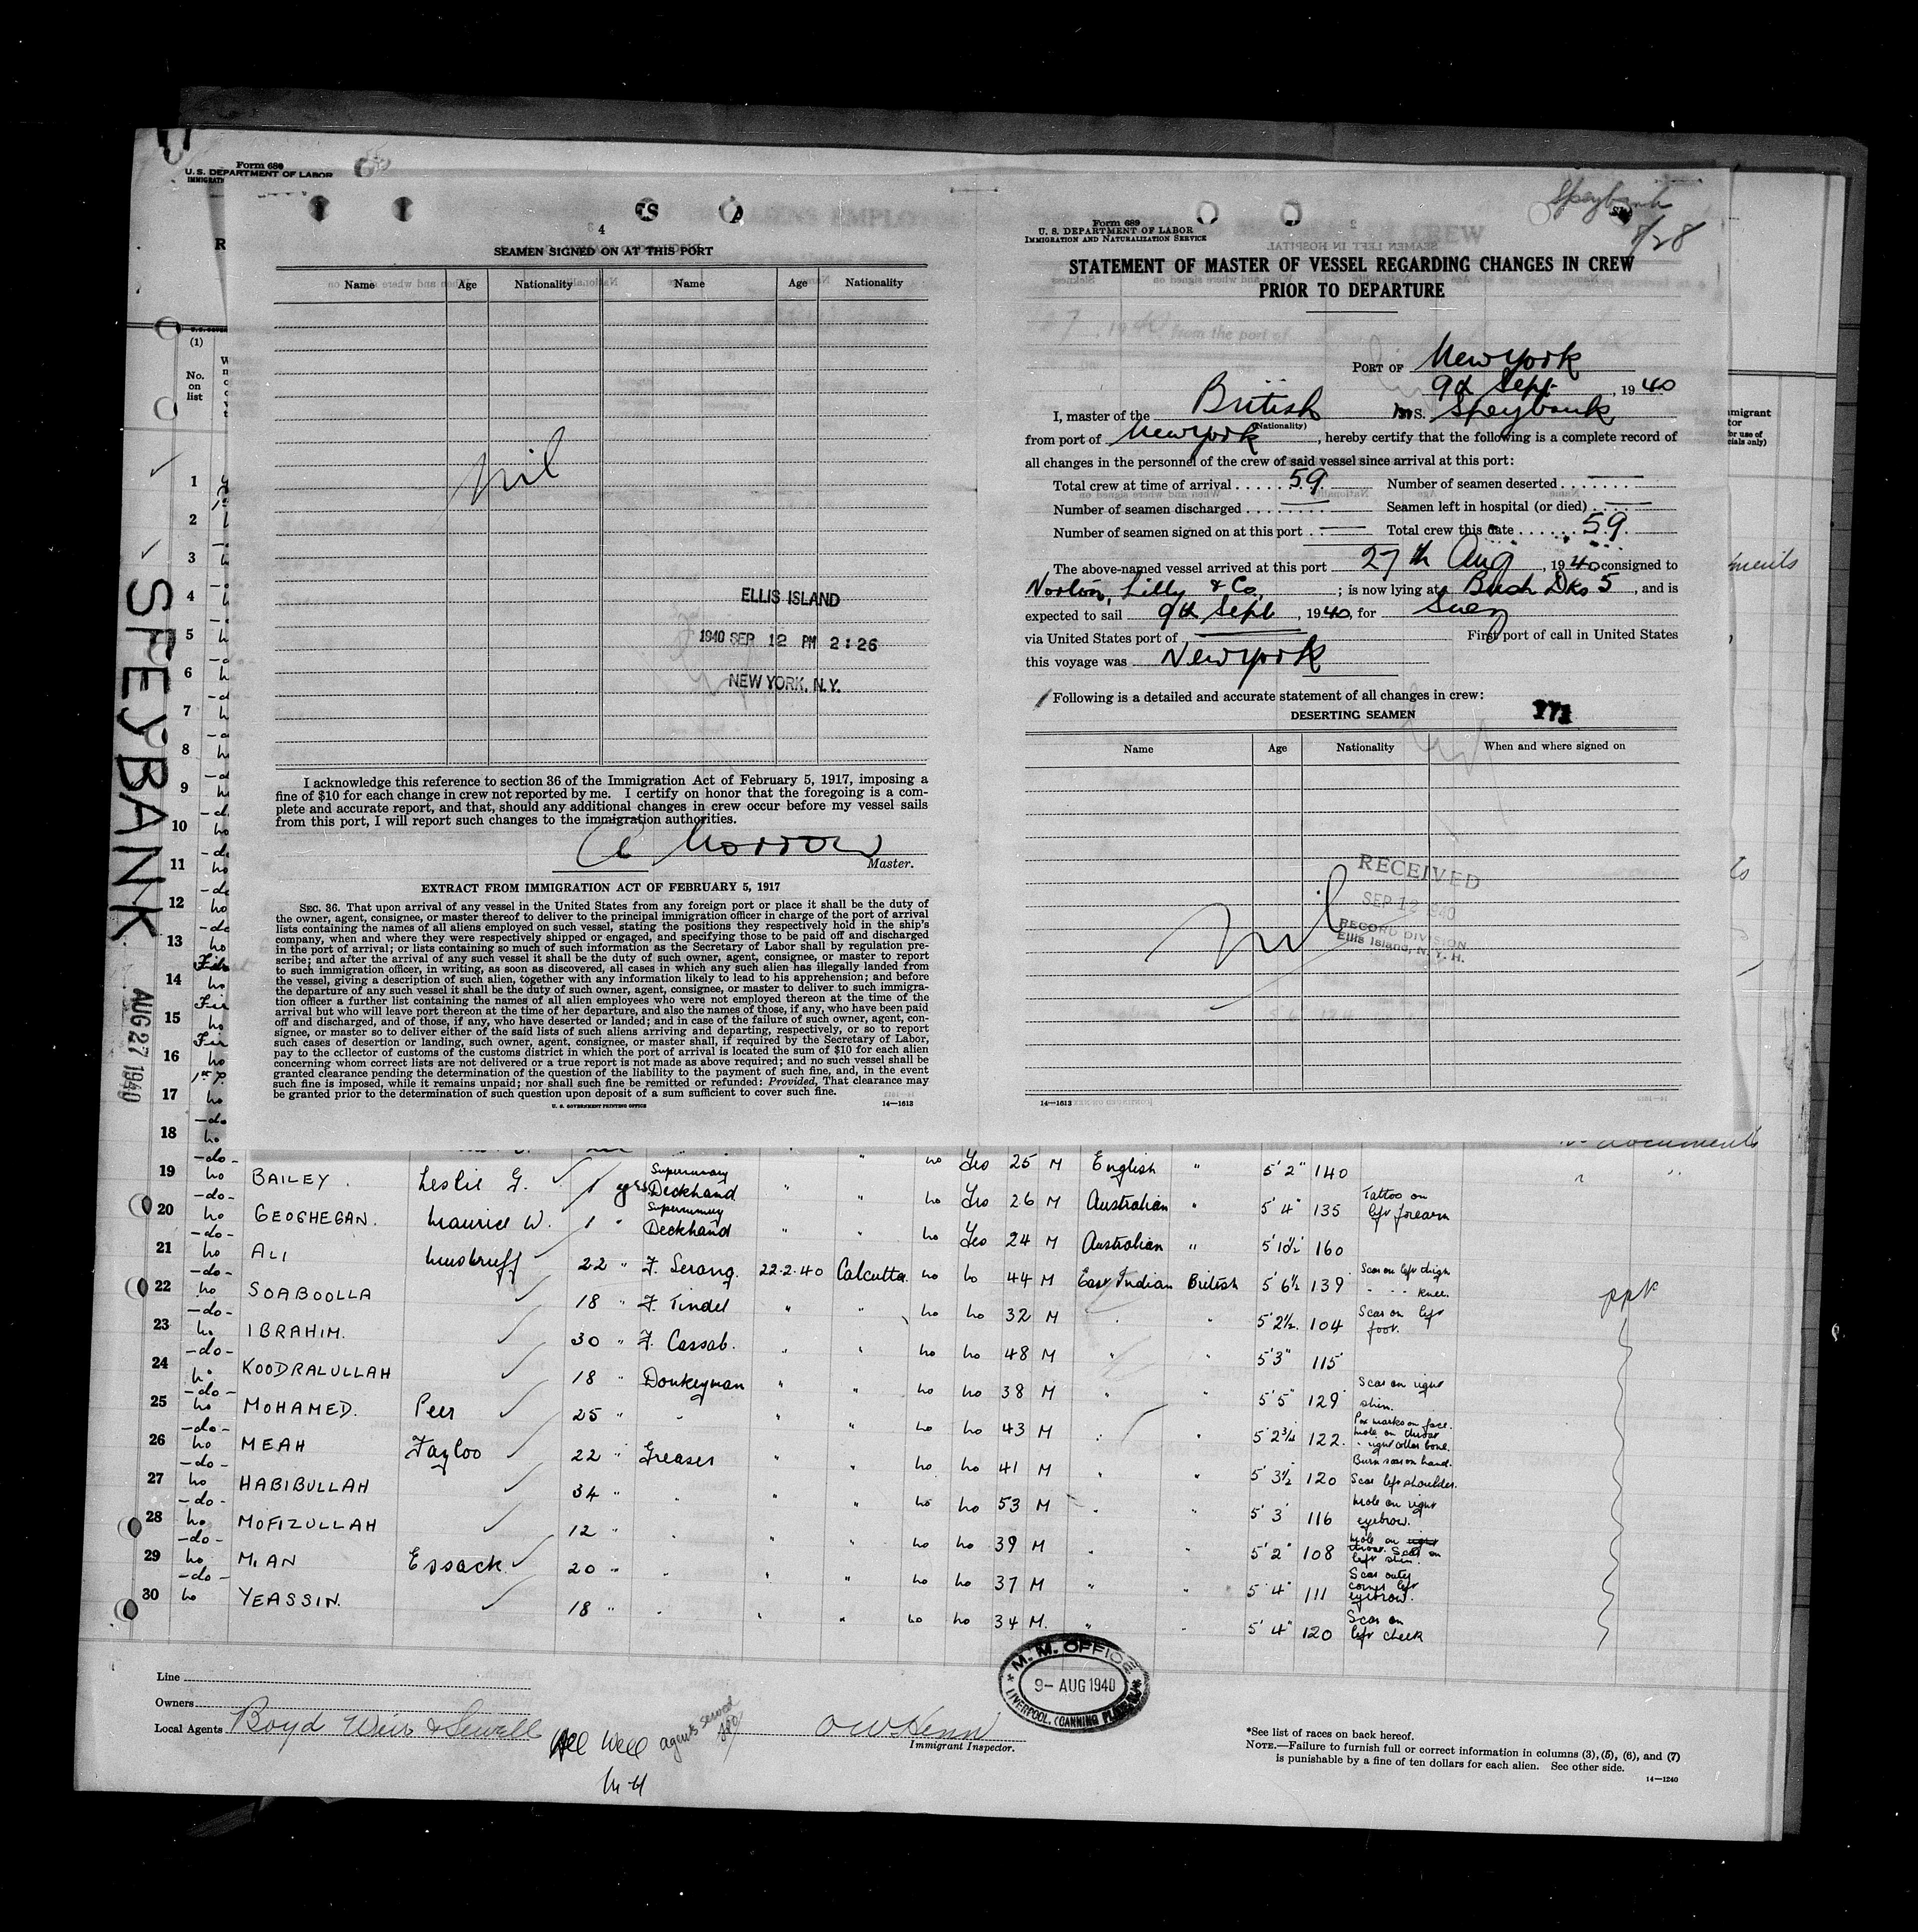 Form 689
U. S. DEPARTMENT OF LABOR
4
SEAMEN SIGNED ON AT THIS PORT
Name Age Nationality Name Age Nationality
nil
ELLIS ISLAND
1940 SEP 12 PM 2:26
NEW YORK, N.Y.
I acknowledge this reference to section 36 of the Immigration Act of February 5, 1917, imposing a
fine of $10 for each change in crew not reported by me. I certify on honor that the foregoing is a com-
plete and accurate report, and that, should any additional changes in crew occur before my vessel sails
from this port, I will report such changes to the immigration authorities.
Morrow
Master.
EXTRACT FROM IMMIGRATION ACT OF FEBRUARY 5, 1917
SEC. 36. That upon arrival of any vessel in the United States from any foreign port or place it shall be the duty of
the owner, agent, consignee, or master thereof to deliver to the principal immigration officer in charge of the port of arrival
lists containing the names of all aliens employed on such vessel, stating the positions they respectively hold in the ship's
company, when and where they were respectively shipped or engaged, and specifying those to be paid off and discharged
in the port of arrival; or lists containing so much of such information as the Secretary of Labor shall by regulation pre-
scribe; and after the arrival of any such vessel it shall be the duty of such owner, agent, consignee, or master to report
to such immigration officer, in writing, as soon as discovered, all cases in which any such alien has illegally landed from
the vessel, giving a description of such alien, together with any information likely to lead to his apprehension; and before
the departure of any such vessel it shall be the duty of such owner, agent, consignee, or master to deliver to such immigra-
tion officer a further list containing the names of all alien employees who were not employed thereon at the time of the
arrival but who will leave port thereon at the time of her departure, and also the names of those, if any, who have been paid
off and discharged, and of those, if any, who have deserted or landed; and in case of the failure of such owner, agent, con-
signee, or master so to deliver either of the said lists of such aliens arriving and departing, respectively, or so to report
such cases of desertion or landing, such owner, agent, consignee, or master shall, if required by the Secretary of Labor,
pay to the collector of customs of the customs district in which the port of arrival is located the sum of $10 for each alien
concerning whom correct lists are not delivered or a true report is not made as above required; and no such vessel shall be
granted clearance pending the determination of the question of the liability to the payment of such fine, and, in the event
such fine is imposed, while it remains unpaid; nor shall such fine be remitted or refunded: Provided, That clearance may
be granted prior to the determination of such question upon deposit of a sum sufficient to cover such fine.
U. S. GOVERNMENT PRINTING OFFICE 14—1613
Speybank
8/28
Form 689
U. S. DEPARTMENT OF LABOR
IMMIGRATION AND NATURALIZATION SERVICE
STATEMENT OF MASTER OF VESSEL REGARDING CHANGES IN CREW
PRIOR TO DEPARTURE
PORT OF New York
9th Sept., 1940
I, master of the British M S. Speybank
(Nationality)
from port of New York, hereby certify that the following is a complete record of
all changes in the personnel of the crew of said vessel since arrival at this port:
Total crew at time of arrival 59. Number of seamen deserted
Number of seamen discharged Seamen left in hospital (or died)
Number of seamen signed on at this port Total crew this date 59.
The above-named vessel arrived at this port 27th Aug, 1940 consigned to
Norton, Lilly & Co.; is now lying at Bush Dks 5, and is
expected to sail 9th Sept, 1940, for Suez
via United States port of First port of call in United States
this voyage was New York
Following is a detailed and accurate statement of all changes in crew:
DESERTING SEAMEN
Name Age Nationality When and where signed on
RECEIVED
SEP 12 1940
RECORD DIVISION
Ellis Island, N. Y. H.
nil
14—1613
SPEYBANK
AUG 27 1940
(1)
No.
on
list
1
2
3
4
5
6
7
8
9
10
11
12
13
14
15
16
17
18
documents
19 no BAILEY. Leslie G. 1 yrs Supernumary Deckhand " " no Yes 25 M English " 5' 2" 140
20 no GEOGHEGAN. Maurice W. 1 " Supernumary Deckhand " " no Yes 26 M Australian " 5' 4" 135 Tattoo on left forearm
no Yes 24 M Australian " 5' 10½" 160
21 no ALI 22 " F. Serang. 22.2.40 Calcutta. no no 44 M East Indian British 5' 6½ 139 Scar on left thigh " " knee.
22 no SOABOOLLA 18 " F. Tindel " " no no 32 M " " 5' 2½ 104 Scar on left foot.
23 no IBRAHIM. 30 " F. Cassab. " " no no 48 M " " 5' 3" 115
24 no KOODRALULLAH 18 " Donkeyman " " no no 38 M " " 5' 5" 129 Scar on right shin.
25 no MOHAMED. Peer 25 " " " " no no 43 M " " 5' 2¾ 122. Pox marks on face. mole on throat " right collar bone.
26 no MEAH Fazloo 22 " Greaser " " no no 41 M " " 5' 3½ 120 Burn scar on hand. Scar left shoulder.
27 no HABIBULLAH 34 " " " " no no 53 M " " 5' 3" 116 Mole on right eyebrow.
28 no MOFIZULLAH 12 " " " " no no 39 M " " 5' 2" 108 Mole on throat. Scar on left shin.
29 no MIAN Essack 20 " " " " no no 37 M " " 5' 4" 111 Scar outer corner left eyebrow.
30 no YEASSIN. 18 " " " " no no 34 M. " " 5' 4" 120 Scar on left cheek
ppt
M. M. OFFICE
9-AUG 1940
LIVERPOOL. (CANNING PLACE)
Line
Owners
Local Agents Boyd Weir & Sewell
All Well
agents served
Immigrant Inspector.
*See list of races on back hereof.
NOTE.—Failure to furnish full or correct information in columns (3), (5), (6), and (7)
is punishable by a fine of ten dollars for each alien. See other side.
14—1240